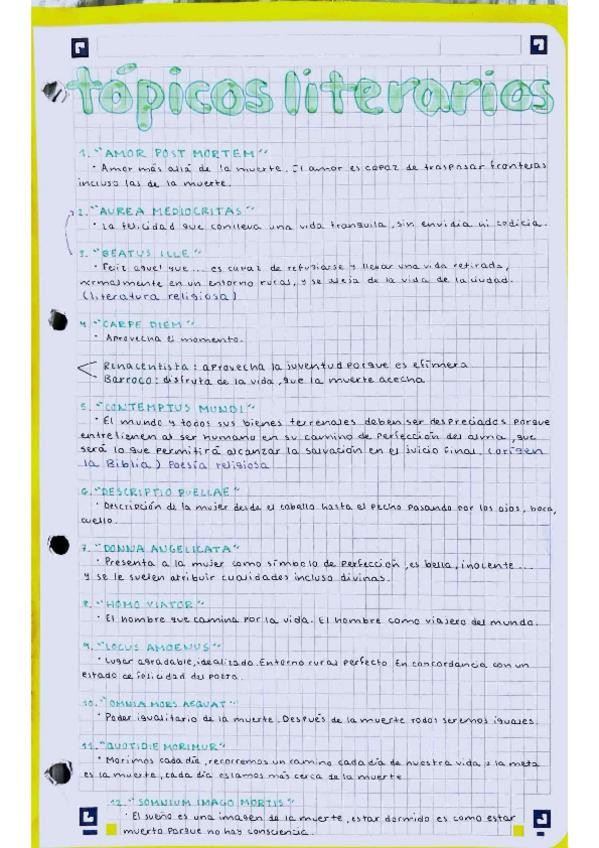 tópicos literarios
1. "AMOR POST MORTEM"
· Amor más allá de la muerte. El amor es capaz de traspasar fronteras
incluso las de la muerte.
2. "AUREA MEDIOCRITAS"
· La felicidad que conlleva una vida tranquila, sin envidia ni codicia.
3. "BEATUS ILLE"
· Feliz aquel que... es capaz de refugiarse y llevar una vida retirada,
normalmente en un entorno rural, y se aleja de la vida de la ciudad.
(literatura religiosa)
4 "CARPE DIEM"
· Aprovecha el momento.
Renacentista: aprovecha la juventud porque es efímera
Barroco: disfruta de la vida, que la muerte acecha
5. "CONTEMPTUS MUNDI"
· El mundo y todos sus bienes terrenales deben ser despreciados porque
entretienen al ser humano en su camino de perfección del alma, que
será lo que permitirá alcanzar la salvación en el juicio final. (origen
la Biblia) Poesía religiosa
6. "DESCRIPTIO PUELLAE"
· Descripción de la mujer desde el cabello hasta el pecho pasando por los ojos, boca,
cuello.
7. "DONNA ANGELICATA"
· Presenta a la mujer como símbolo de perfección, es bella, inocente...
y se le suelen atribuir cualidades incluso divinas.
8. "HOMO VIATOR"
· El hombre que camina por la vida. El hombre como viajero del mundo.
9. "LOCUS AMOENUS"
· Lugar agradable, idealizado. Entorno rural perfecto. En concordancia con un
estado de felicidad del poeta.
10. "OMNIA MORS AEQUAT"
· Poder igualitario de la muerte. Después de la muerte todos seremos iguales.
11. "QUOTIDIE MORIMUR"
· Morimos cada día, recorremos un camino cada día de nuestra vida y la meta
es la muerte, cada día estamos más cerca de la muerte
12. "SOMNIUM IMAGO MORTIS"
· El sueño es una imagen de la muerte, estar dormido es como estar
muerto porque no hay consciencia.